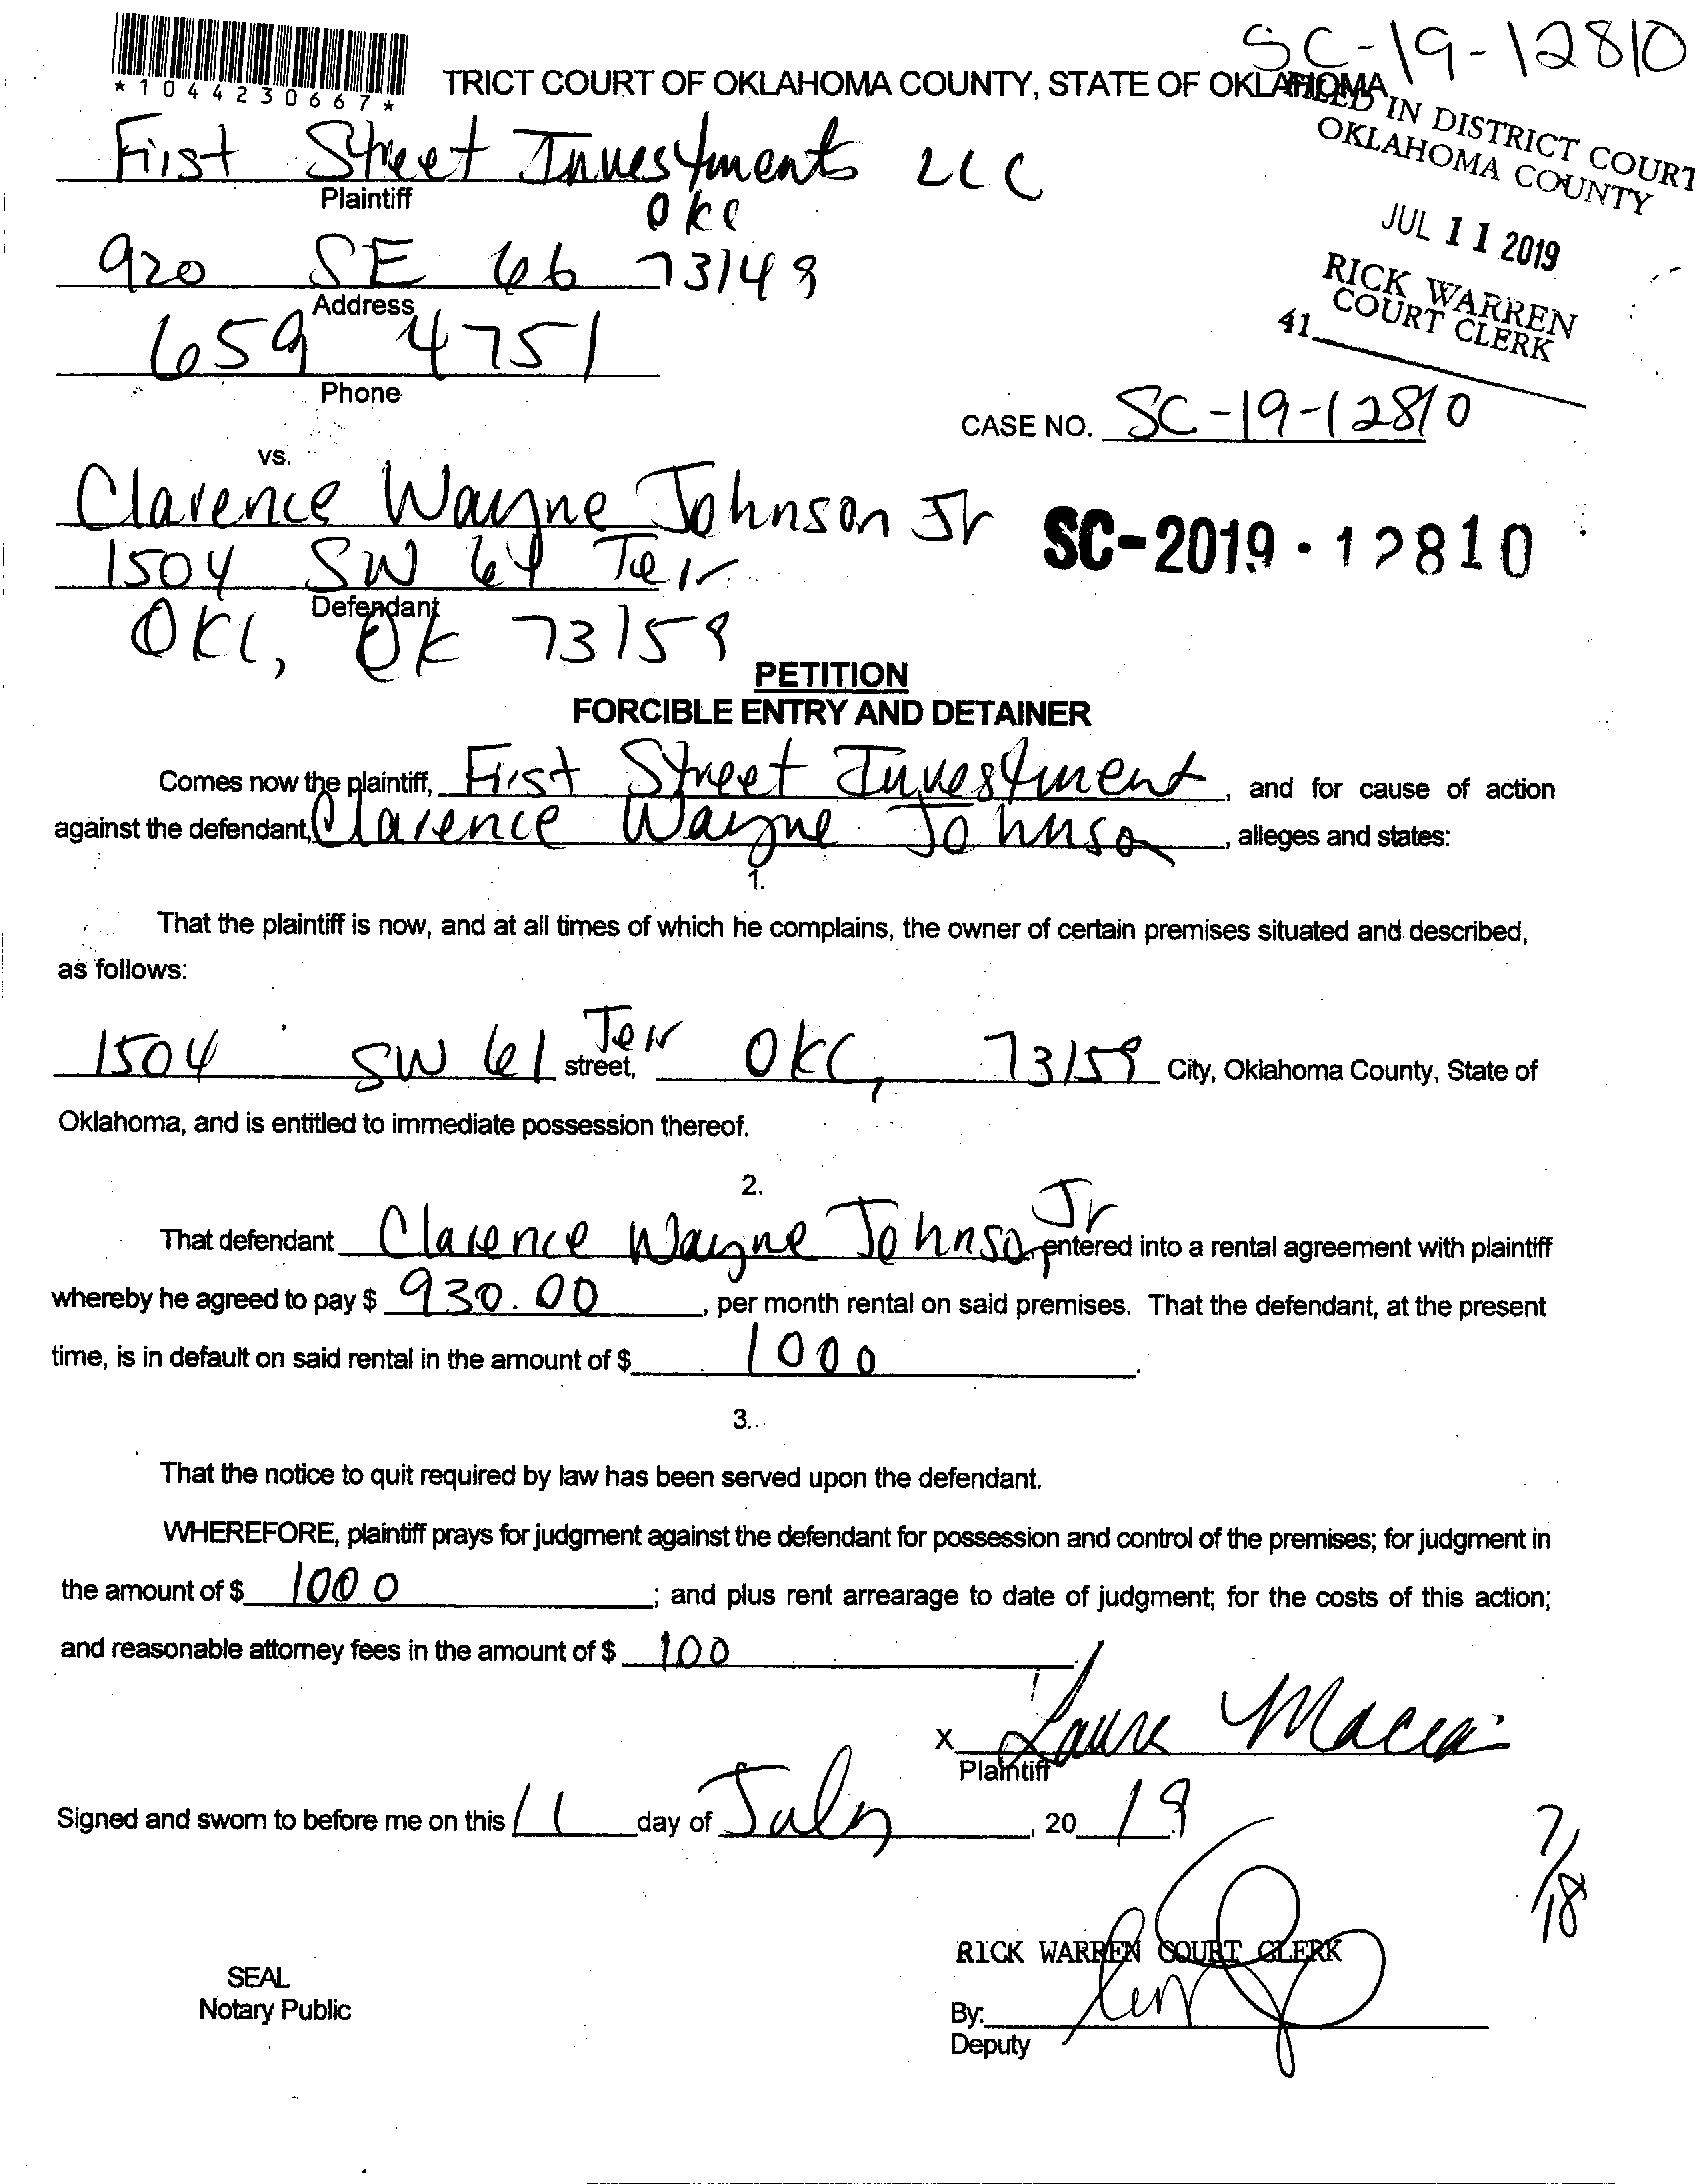 SC-19-12810
*1044230667*
TRICT COURT OF OKLAHOMA COUNTY, STATE OF OKLAHOMA
FILED IN DISTRICT COURT
OKLAHOMA COUNTY
JUL 11 2019
RICK WARREN
COURT CLERK
41
First Street Investments LLC
Plaintiff
OKC
920 SE 66 73149
Address
659 4751
Phone
CASE NO. SC-19-12810
vs.
Clarence Wayne Johnson Jr
SC-2019-12810
1504 SW 61 Terr
Defendant
OKC, OK 73159
PETITION
FORCIBLE ENTRY AND DETAINER
Comes now the plaintiff, First Street Investment, and for cause of action
against the defendant, Clarence Wayne Johnson, alleges and states:
1.
That the plaintiff is now, and at all times of which he complains, the owner of certain premises situated and described,
as follows:
1504 SW 61 Terr street, OKC, 73159 City, Oklahoma County, State of
Oklahoma, and is entitled to immediate possession thereof.
2.
That defendant Clarence Wayne Johnson Jr entered into a rental agreement with plaintiff
whereby he agreed to pay $ 930.00, per month rental on said premises. That the defendant, at the present
time, is in default on said rental in the amount of $ 1000.
3.
That the notice to quit required by law has been served upon the defendant.
WHEREFORE, plaintiff prays for judgment against the defendant for possession and control of the premises; for judgment in
the amount of $ 1000; and plus rent arrearage to date of judgment; for the costs of this action;
and reasonable attorney fees in the amount of $ 100
X Laura Macia
Plaintiff
Signed and sworn to before me on this 11 day of July, 20 19.
7/18
RICK WARREN COURT CLERK
SEAL
Notary Public
By:
Deputy